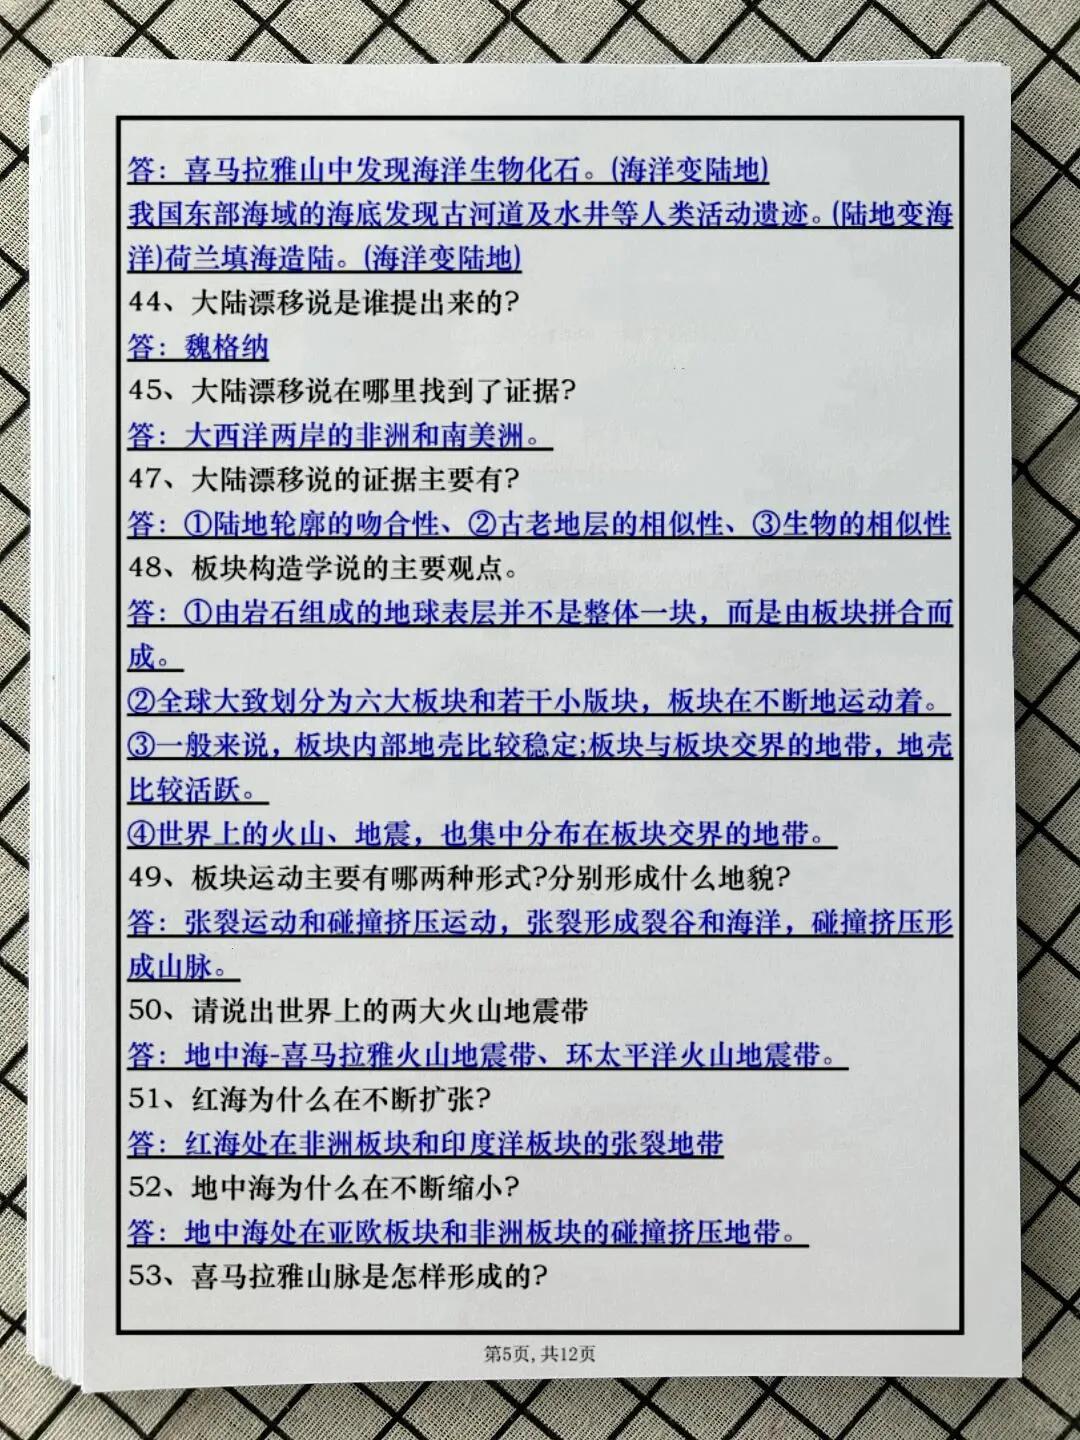 答：喜马拉雅山中发现海洋生物化石。(海洋变陆地)
我国东部海域的海底发现古河道及水井等人类活动遗迹。(陆地变海
洋)荷兰填海造陆。(海洋变陆地)
44、大陆漂移说是谁提出来的?
答：魏格纳
45、大陆漂移说在哪里找到了证据?
答：大西洋两岸的非洲和南美洲。
47、大陆漂移说的证据主要有?
答：①陆地轮廓的吻合性、②古老地层的相似性、③生物的相似性
48、板块构造学说的主要观点。
答：①由岩石组成的地球表层并不是整体一块，而是由板块拼合而
成。
②全球大致划分为六大板块和若干小版块，板块在不断地运动着。
③一般来说，板块内部地壳比较稳定;板块与板块交界的地带，地壳
比较活跃。
④世界上的火山、地震，也集中分布在板块交界的地带。
49、板块运动主要有哪两种形式?分别形成什么地貌?
答：张裂运动和碰撞挤压运动，张裂形成裂谷和海洋，碰撞挤压形
成山脉。
50、请说出世界上的两大火山地震带
答：地中海-喜马拉雅火山地震带、环太平洋火山地震带。
51、红海为什么在不断扩张?
答：红海处在非洲板块和印度洋板块的张裂地带
52、地中海为什么在不断缩小?
答：地中海处在亚欧板块和非洲板块的碰撞挤压地带。
53、喜马拉雅山脉是怎样形成的?
第5页, 共12页